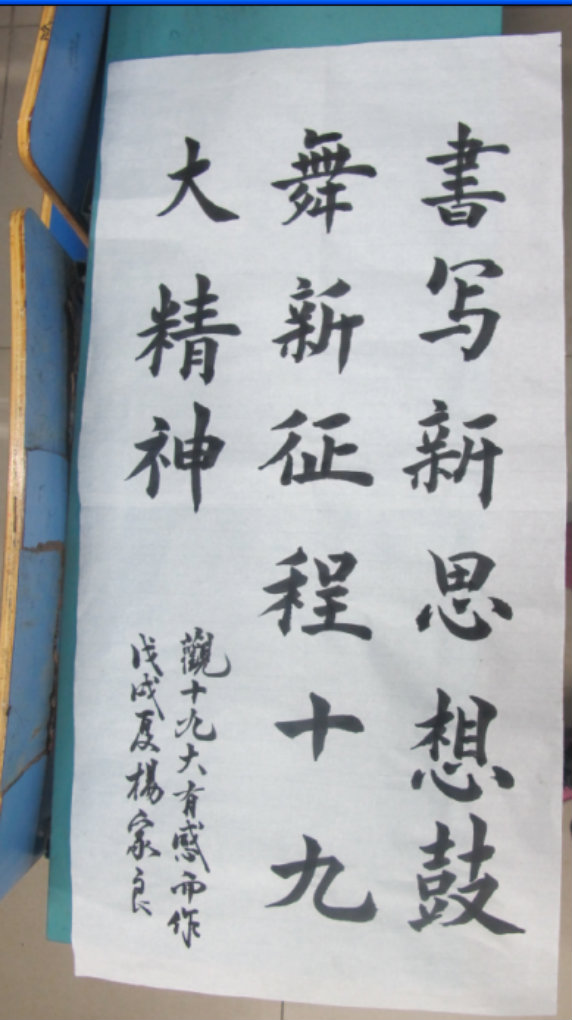 書写新思想鼓
舞新征程十九
大精神
觀十九大有感而作
戊戌夏楊家良